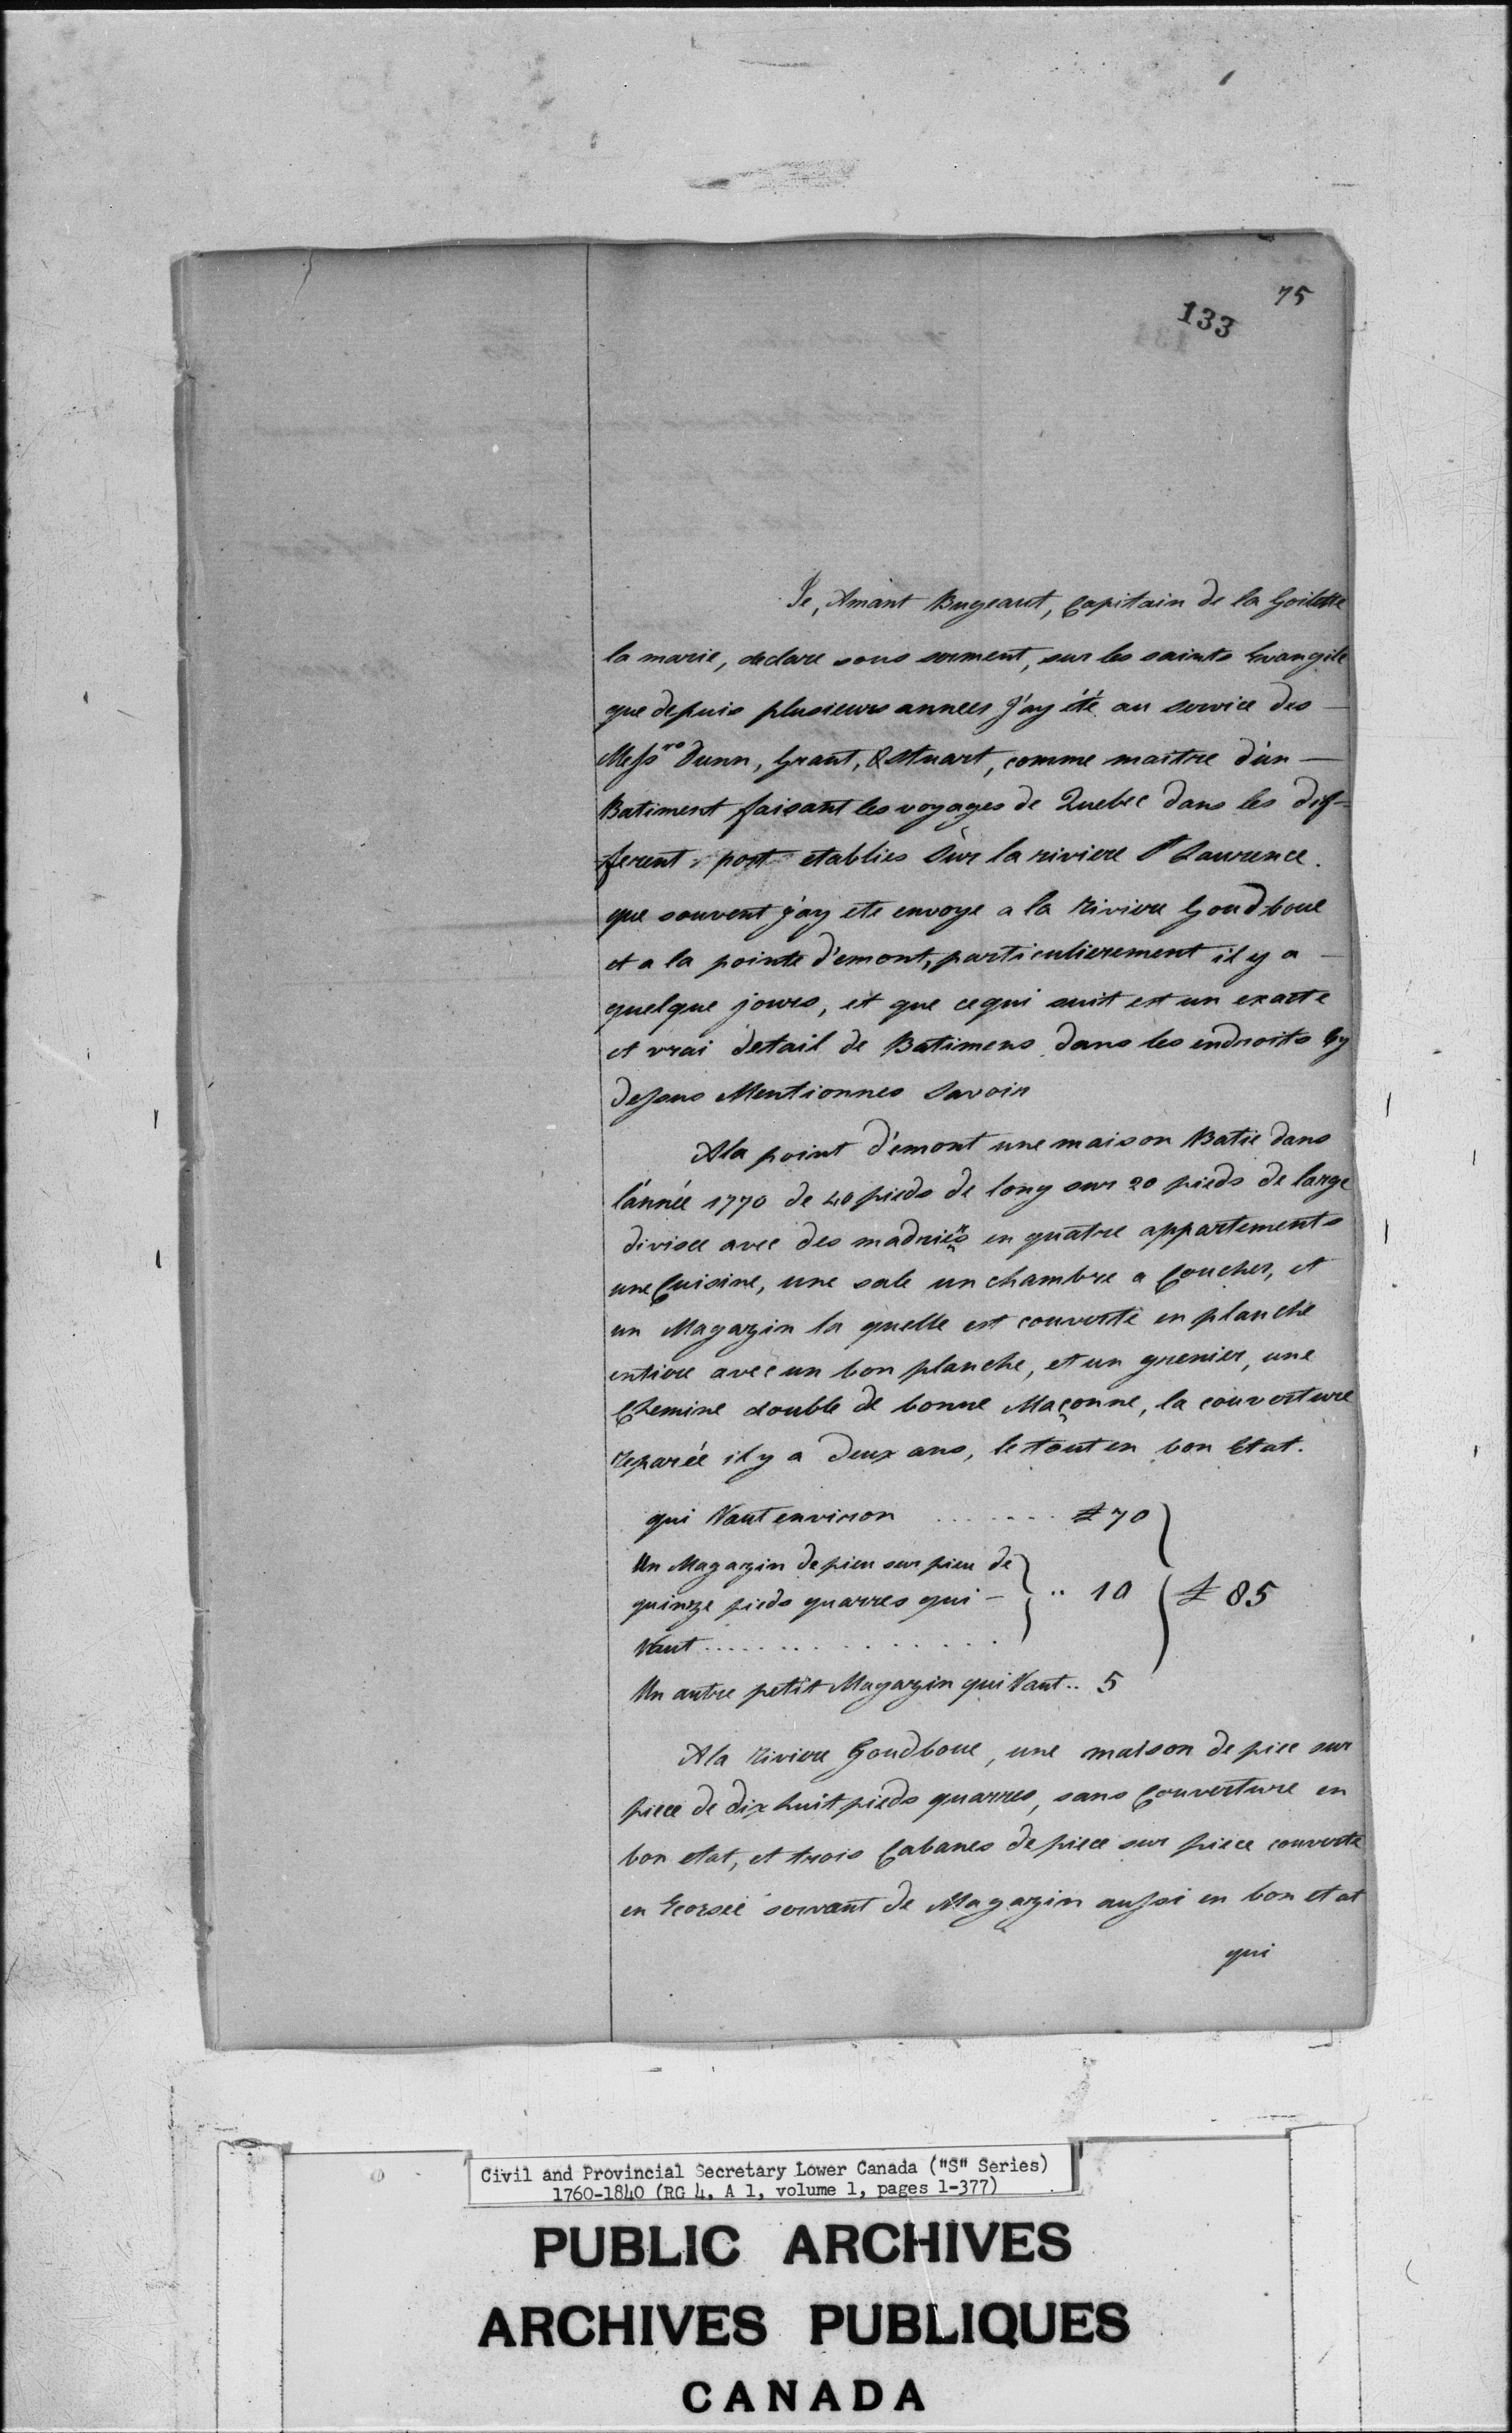 75
133
Je, Amant Bugeaut, Capitain de la Goilette
la marie, declare sous serment, sur les saints Evangile
que depuis plusieurs annees J'ay été au service des
Messrs Dunn, Grant, & Stuart, comme maitre d'un
Batiment faisant les voyages de Quebec dans les dif-
ferent post etablies sur la riviere St Laurence.
que souvent j'ay ete envoye a la Riviere Goudboue
et a la pointe d'emont, particulierement il y a
quelque jours, et que cequi suit est un exacte
et vrai detail de Batimens dans les endroits Cy
dessous Mentionnes Savoir
Ala point d'emont une maison Batie dans
l'année 1770 de 40 pieds de long sur 20 pieds de large
divisee avec des madriers en quatre appartements
une Cuisine, une sale un chambre a Coucher, et
un Magazin la quelle est couverte en planche
entiere avec un bon planche, et un grenier, une
Chemine double de bonne Maçonne, la couverture
reparée il y a deux ans, le tout en bon Etat.
qui Vaut environ ....... £ 70
Un Magazin de pieu sur pieu de
quinze pieds quarres qui - .. 10 £ 85
Vaut ...............
Un autre petit Magazin qui Vaut .. 5
Ala Riviere Goudboue, une maison de piece sur
piece de dix huit pieds quarres, sans Couverture en
bon etat, et trois Cabanes de piece sur piece couverte
en Ecorsee servant de Magazin aussi en bon etat
qui
Civil and Provincial Secretary Lower Canada ("S" Series)
1760-1840 (RG 4, A 1, volume 1, pages 1-377)
PUBLIC ARCHIVES
ARCHIVES PUBLIQUES
CANADA